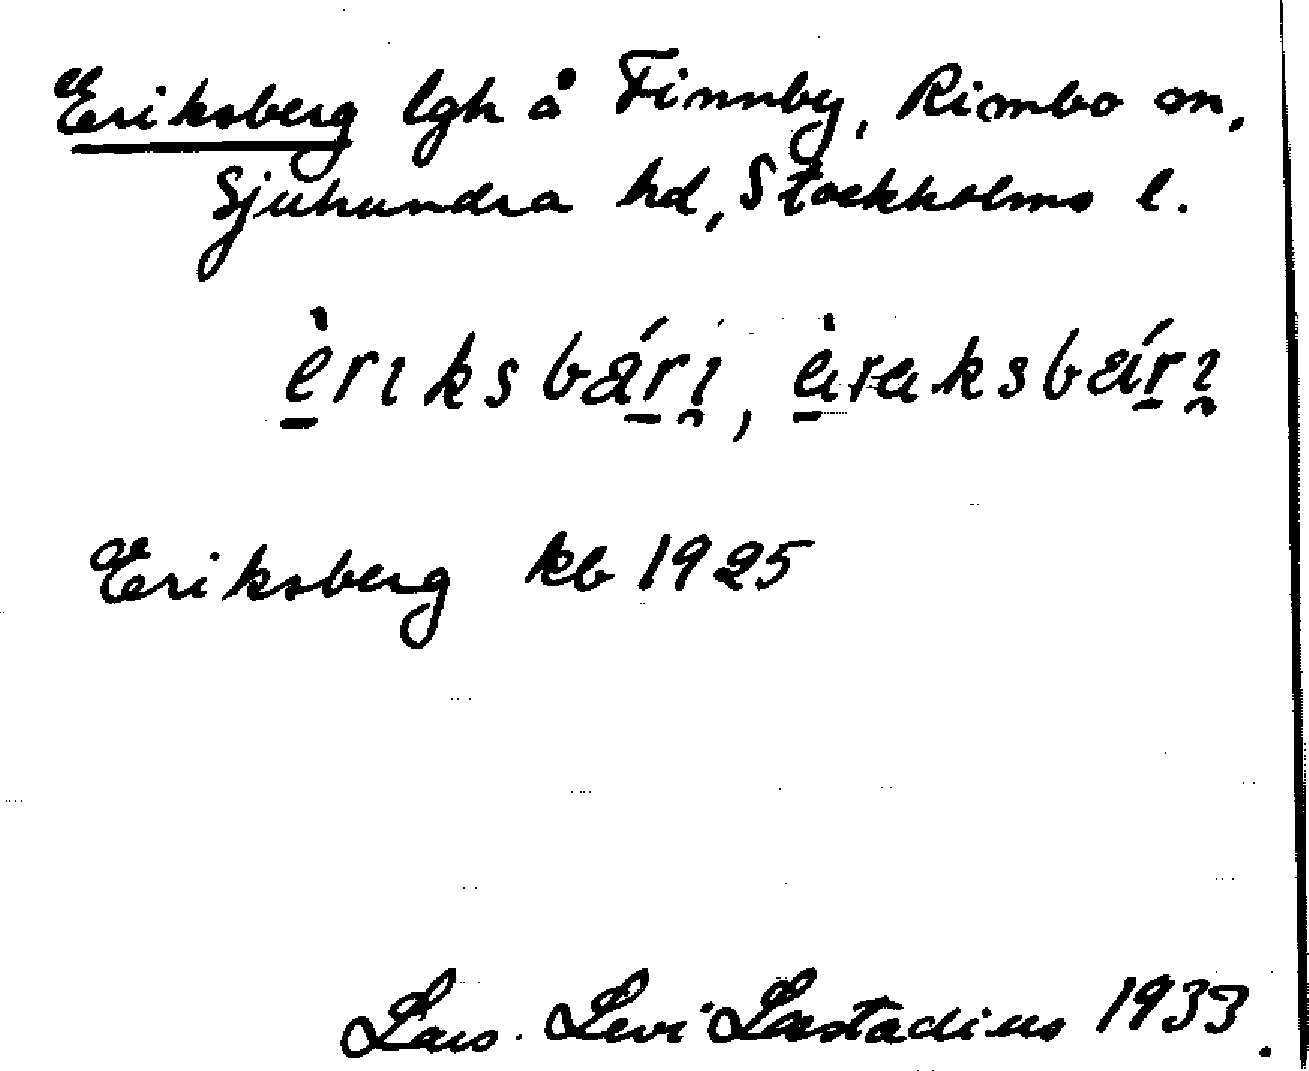 Eriksberg lgh å Finnby, Rimbo sn,
Sjuhundra hd, Stockholms l.
èriksbári, àraksbári
Eriksberg kb 1925
Lars Levi Læstadius 1933.